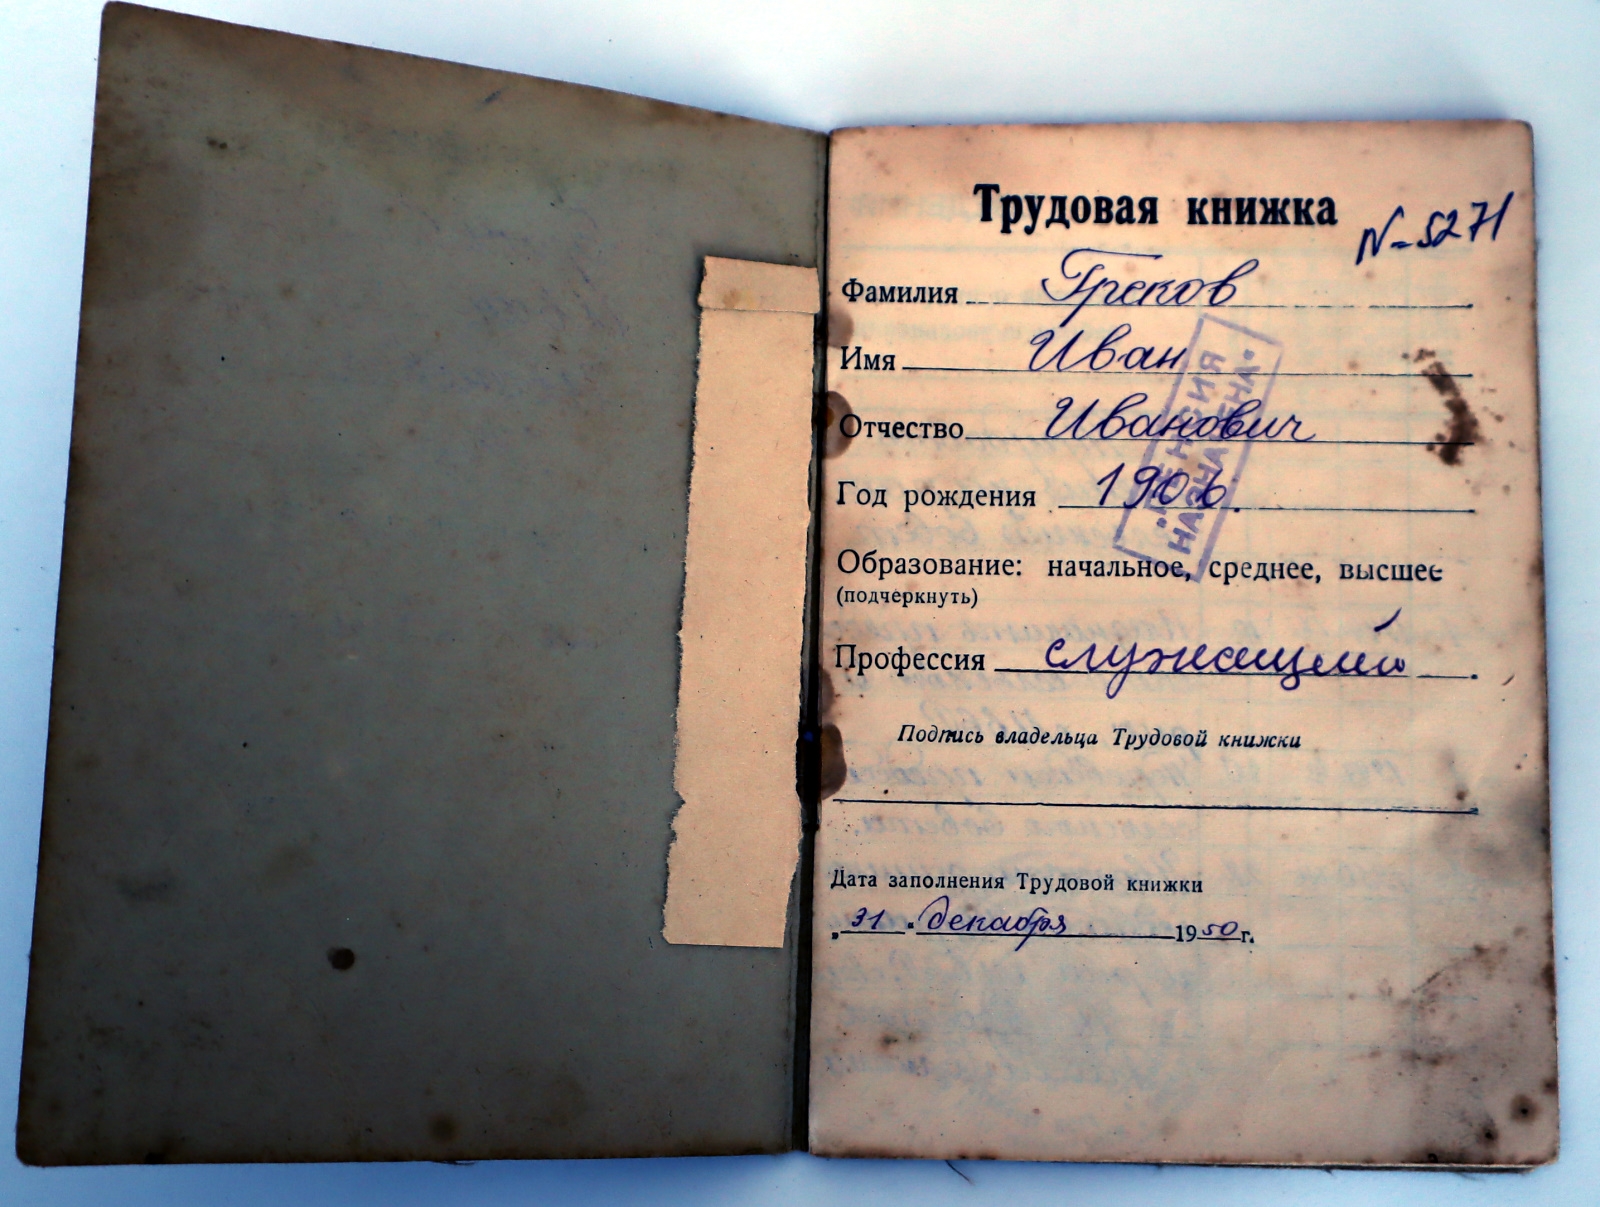 Трудовая книжка
N-5271
Фамилия Греков
Имя Иван
Отчество Иванович
Год рождения 1906.
Образование: начальное, среднее, высшее
(подчеркнуть)
Профессия служащий
Подпись владельца Трудовой книжки
Дата заполнения Трудовой книжки
„31" декабря 1950 г.
ПЕНСИЯ
НАЗНАЧЕНА